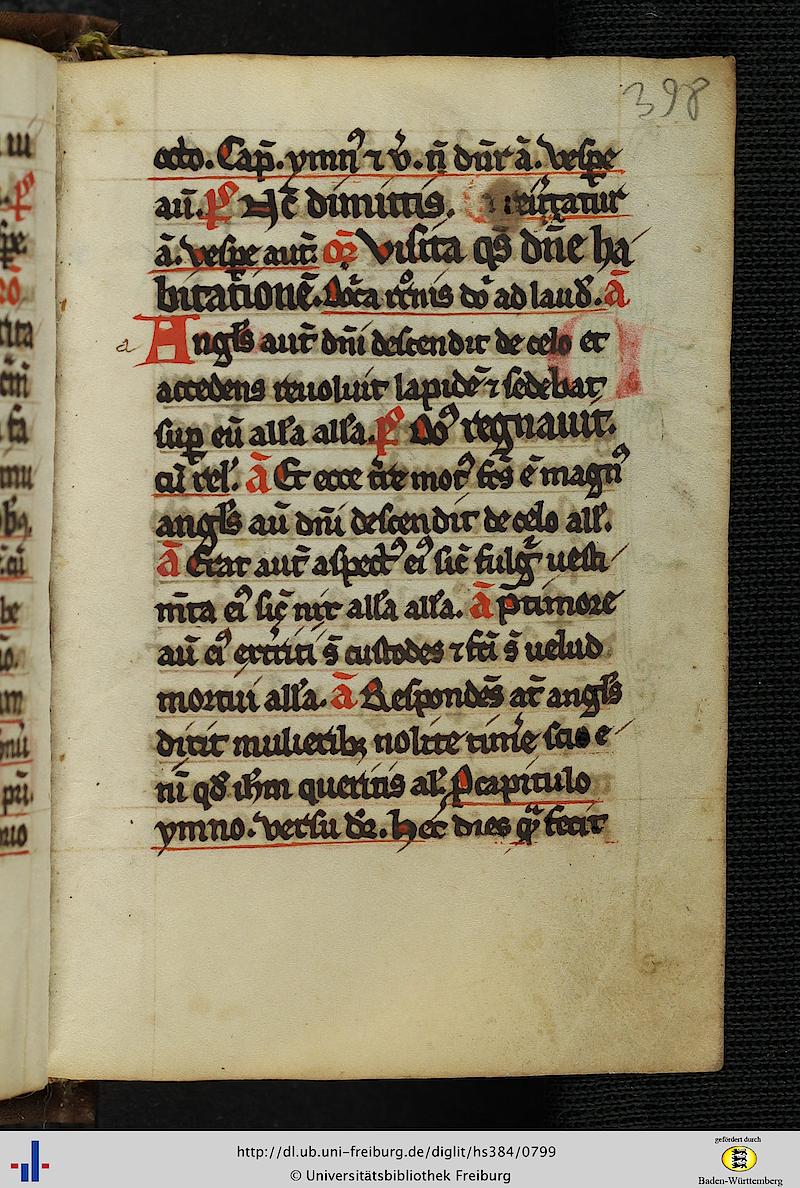 398
octo. Cap̄. ymn᷒ ⁊ v̄. n̄ dn̄r ā. vespe
aū. p᷒ Nc̄ dimittis.
ā. vespe aut̄. or̄ Visita qs̄ dn̄e ha
bitationē. ad laud̄. ā
a Angl̄s aut̄ dn̄i descendit de celo et
accedens reuoluit lapidē ⁊ sedebat
sup̄ eū all̄a all̄a. p᷒ Do᷒ regnauit.
cū rel̄. ā Et ecce t̄re mot᷒ fc̄s ē magn᷒
angl̄s aū dn̄i descendit de celo all̄.
ā Erat aut̄ aspect᷒ ei᷒ sic̄ fulg᷒ uesti
m̄ta ei᷒ sic̄ nix all̄a all̄a. ā p̄timore
aū ei᷒ ext̄riti s̄ custodes ⁊ fc̄i s̄ uelud
mortui all̄a. ā Respondēs at̄ angl̄s
dixit mulierib; nolite tim̄e scio e
ni qd̄ ih̄m queritis al̄. p̄capitulo
ymno. versu dr̄. Hec dies qᷓ fecit
http://dl.ub.uni-freiburg.de/diglit/hs384/0799
© Universitätsbibliothek Freiburg
gefördert durch
Baden-Württemberg